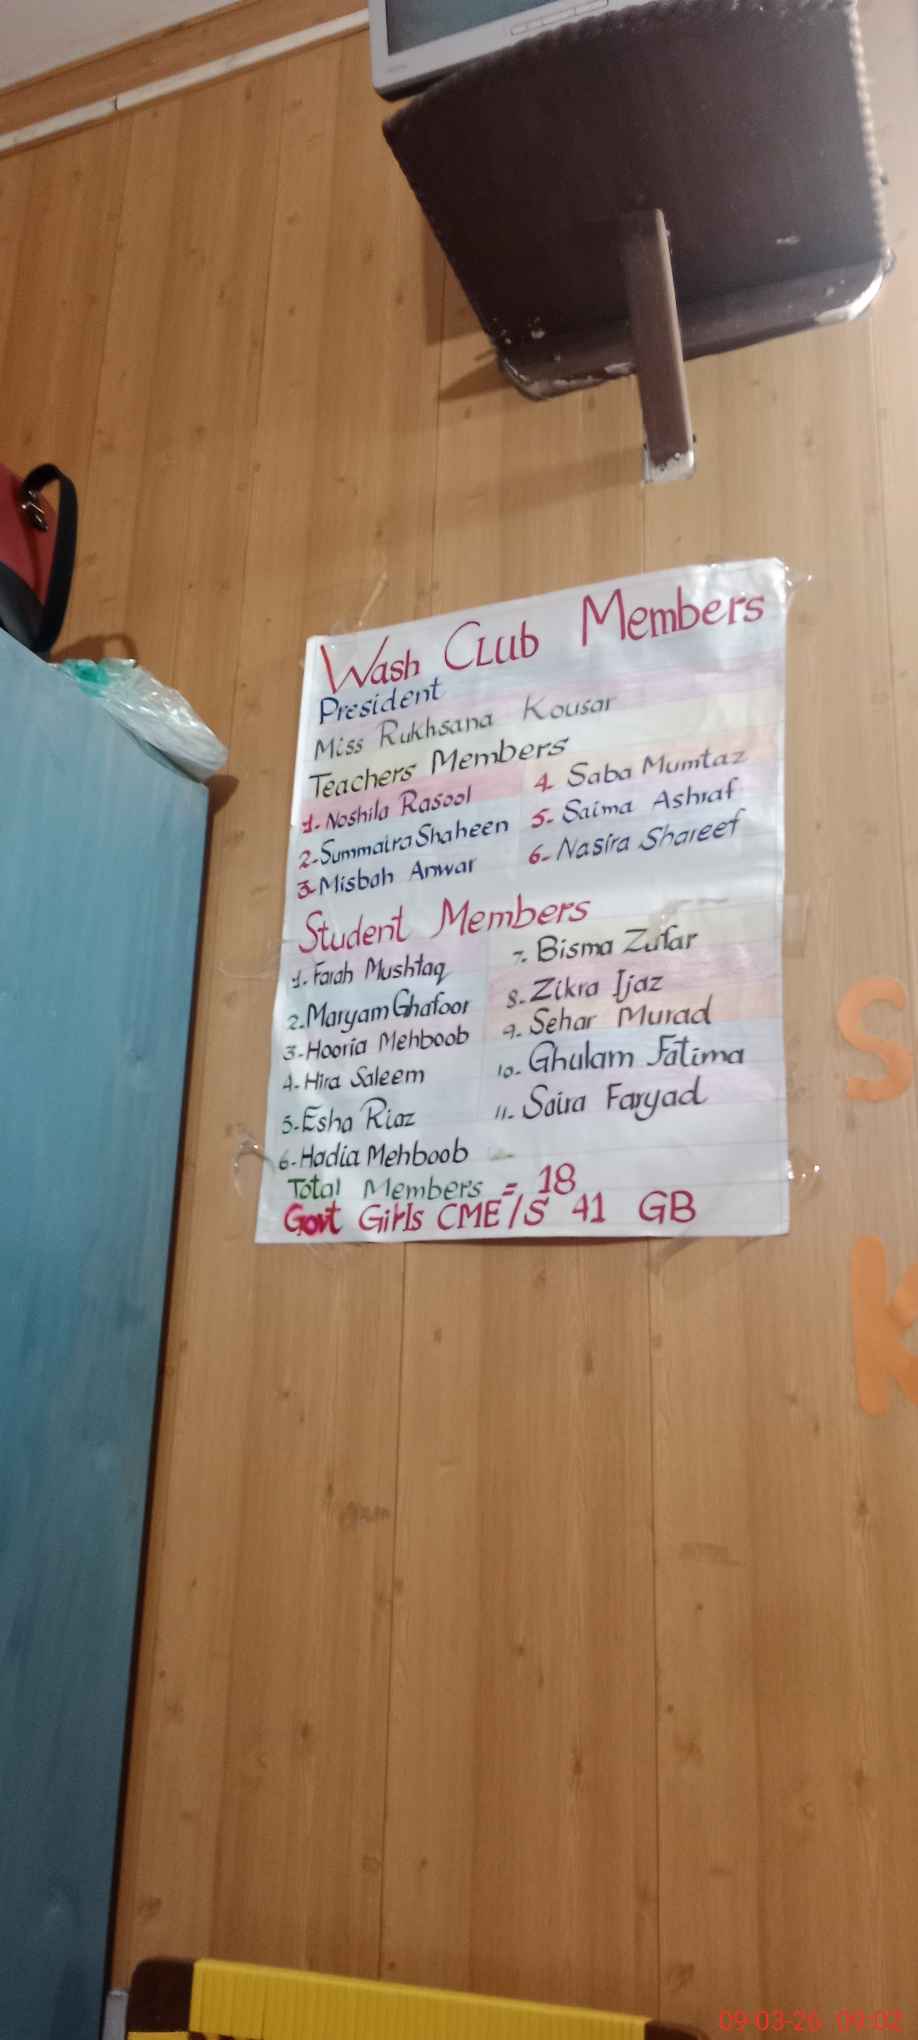 Wash Club Members
President
Miss Rukhsana Kousar
Teachers Members
1. Noshila Rasool
2. Summaira Shaheen
3. Misbah Anwar
4. Saba Mumtaz
5. Saima Ashraf
6. Nasira Shareef
Student Members
1. Farah Mushtaq
2. Maryam Ghafoor
3. Hooria Mehboob
4. Hira Saleem
5. Esha Riaz
6. Hadia Mehboob
7. Bisma Zufar
8. Zikra Ijaz
9. Sehar Murad
10. Ghulam Fatima
11. Saira Faryad
Total Members = 18
Govt Girls CME/S 41 GB
S
K
09-03-26 09:02